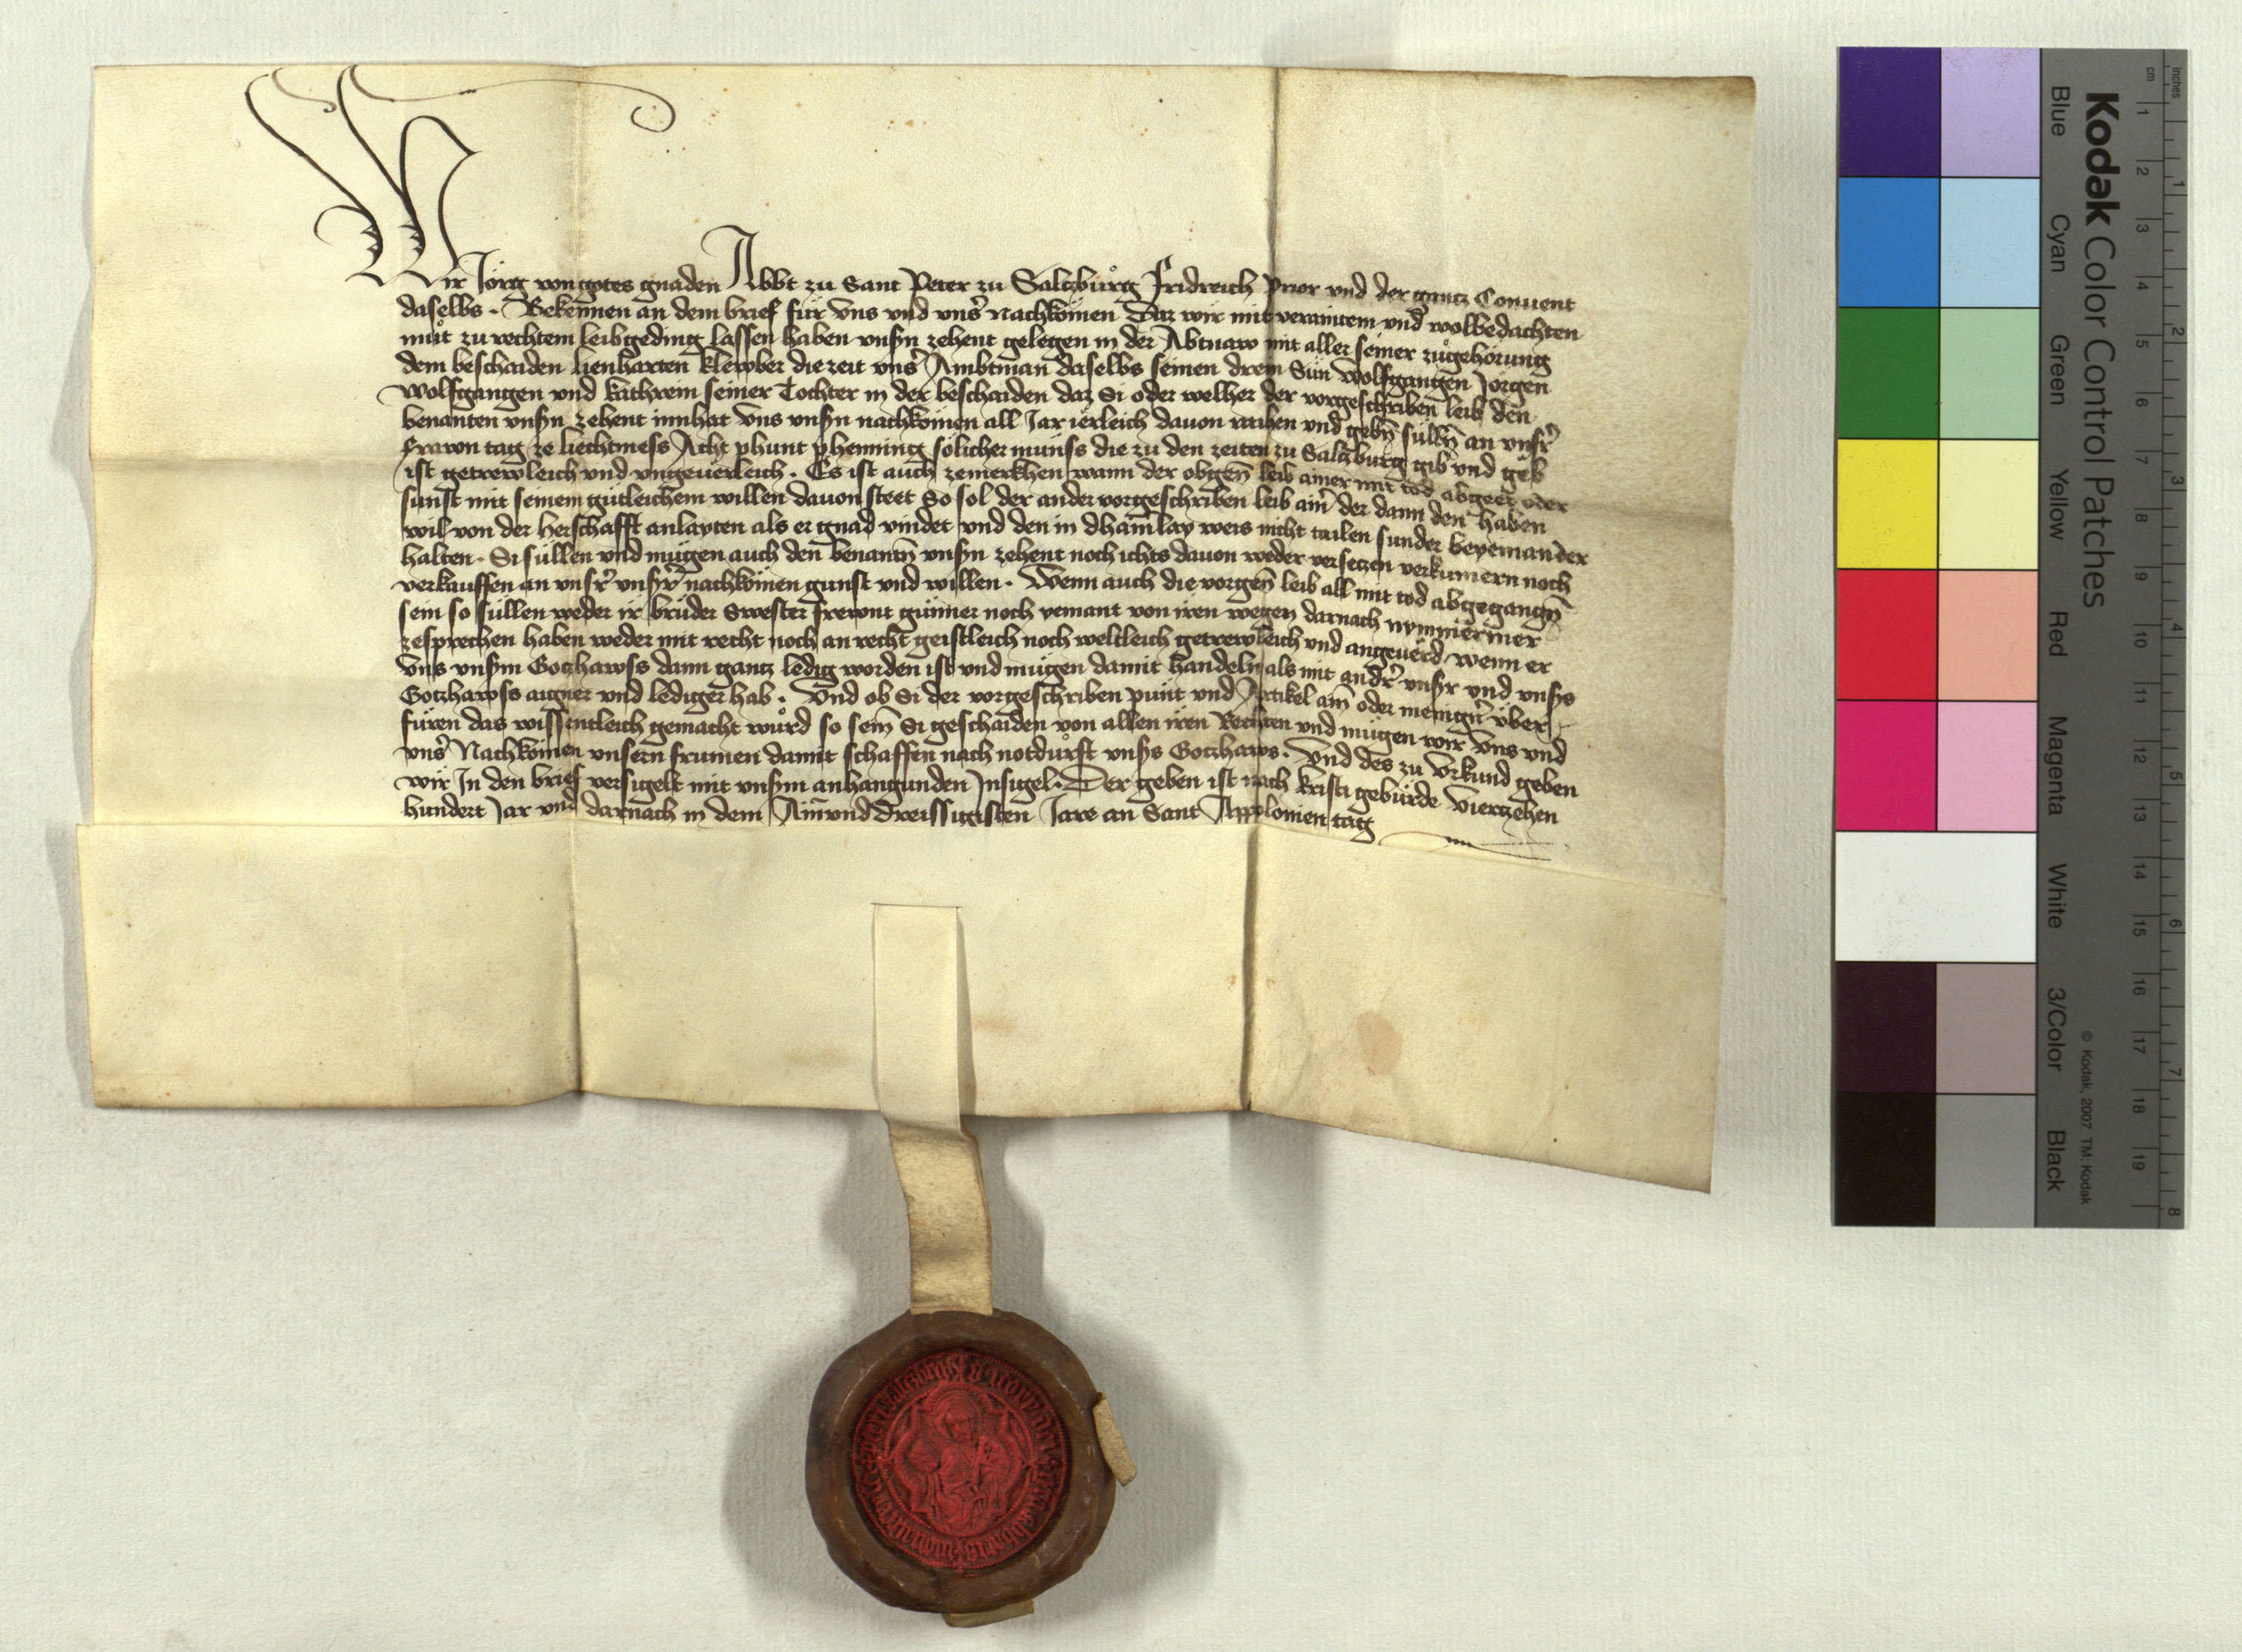 Wir Jörg von gotes gnaden Abbt zu Sant Peter zu Saltzburg Fridreich Prior vnd der gantz Conuent
daselbs . Bekennen an dem brief für vns vnd vnsˀ nachkömen Daz wir mit veraintem vnd wolbedachten
muͦt zu rechtem leibgeding lassen haben vnsn̄ zehent gelegen in der Abtnaw mit aller seiner zuͦgehörung
dem beschaiden lienharten klewber die zeit vnsˀ Ambtman daselbs seinen drein Sün wolfgangen Jorgen
wolfgangen vnd kathrein seiner Tochter in der beschaiden daz Si oder welher der vorgeschriben leib den
benanten vnsn̄ zehent innhat vns vnsn̄ nachkömen all Jar ierleich dauon raihen vnd gebn̄ sülln̄ an vnsrˀ
frawn tag ze liechtmess Acht phunt phenning solicher münss die zu den zeiten zu Saltzburg gib vnd geb
ist getrewleich vnd vngeuerleich . Es ist auch zemerkhen wann der obgen̄ leib ainer mit tod abgeet oder
sunst mit seinem guͤtleichem willen dauon steet So sol der ander vorgeschriben leib ain̄ der dann den haben
wil von der herschafft anlayten als er gnad vindet vnd den in dhain̄lay weis nicht tailen sunder beyeinander
halten . Si süllen vnd mügen auch den benantn̄ vnsn̄ zehent noch ichts dauon weder versetzen verkumern noch
verkauffen an vnsrˀ vnsrˀ nachkömen gunst vnd willen . Wenn auch die vorgen̄ leib all mit tod abgegangn̄
sein so süllen weder ir brüder Swester frewnt günner noch yemant von iren wegen darnach nymmermer
zesprechen haben weder mit recht noch an recht geistleich noch weltleich getrewleich vnd angeuerd wenn er
vns vnsm Gotzhawss dann gantz ledig worden ist vnd mügen damit handeln als mit andrˀ vnsr vnd vnsˀs
Gotzhawss aigner vnd lediger hab . Vnd ob Si der vorgeschriben pünt vnd Artikel ain̄ oder menignˀ über-
füren das wissentleich gemacht wurd so sein̄ Si geschaiden von allen iren Rechten vnd mügen wir vns vnd
vnsˀ Nachkömen vnsern frumen damit schaffen nach notdurft vnsˀs Gotzhaws . Vnd des zu vrkund geben
wir In den brief versigelt mit vnsm anhangunden Insigel . Der geben ist nach kristi gebürde Vierzehen
hundert Jar vnd darnach in dem Ainvnddreissigisten Jare an Sant Applonien tag
Kodak Color Control Patches
Blue Cyan Green Yellow Red Magenta White 3/Color Black
cm 1 2 3 4 5 6 7 8 9 10 11 12 13 14 15 16 17 18 19
inches 1 2 3 4 5 6 7 8
© Kodak, 2007 TM: Kodak